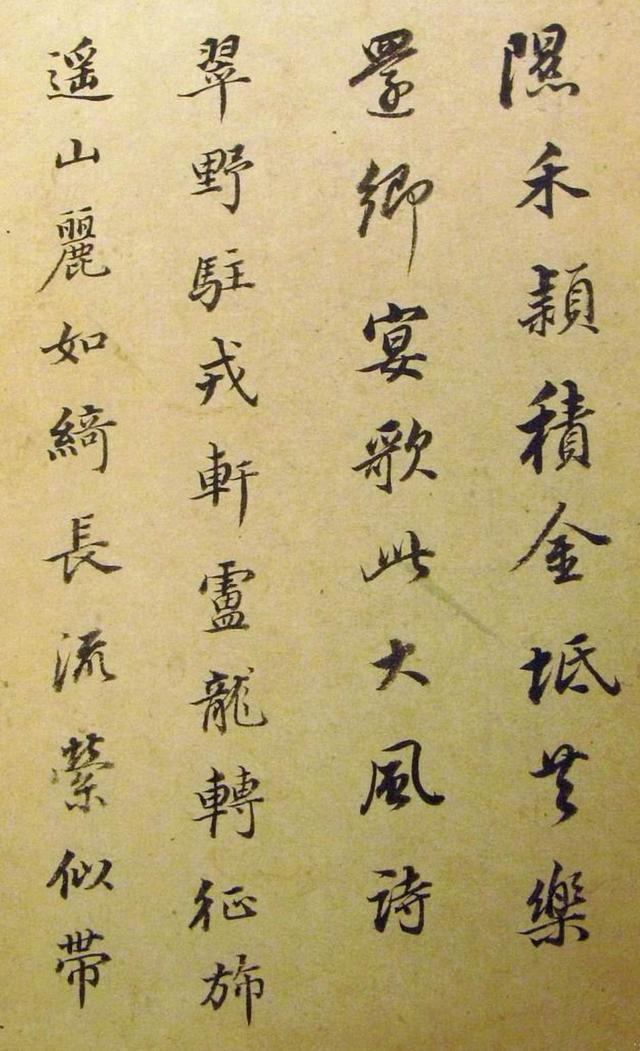 隰禾頴積金坻共樂
還鄉宴歌此大風詩
翠野駐戎軒盧龍轉征旆
遥山麗如綺長流縈似帶